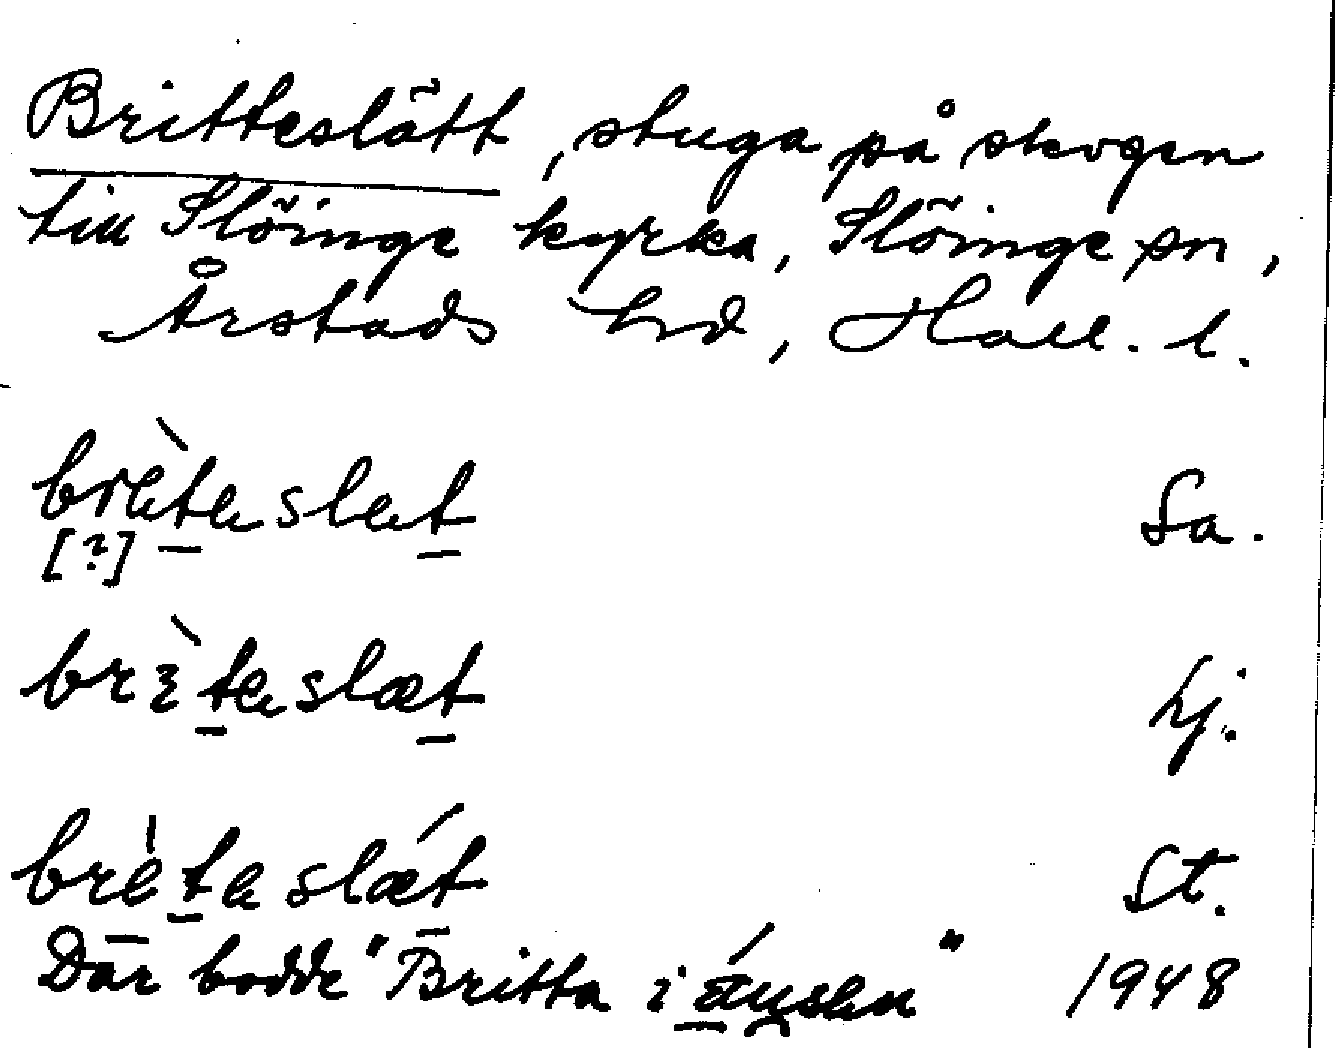 Britteslätt, stuga på skogen
till Slöinge kyrka, Slöinge sn,
Årstads hd, Hall. l.
brèteslæt Sa.
[?]
brèteslæt Hj.
brèteslǽt St.
Där bodde "Britta i " 1948